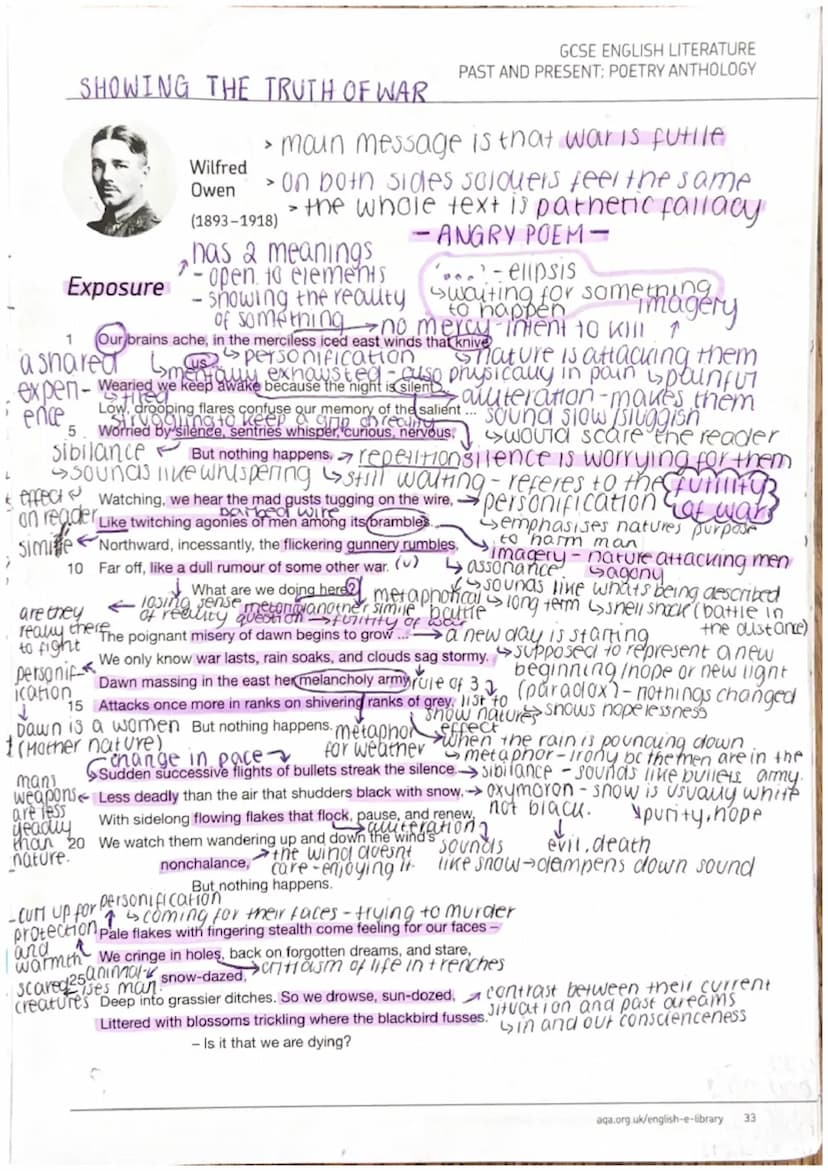 GCSE ENGLISH LITERATURE
PAST AND PRESENT: POETRY ANTHOLOGY
SHOWING THE TRUTH OF WAR
> main message is that war is futile
Wilfred
Owen
(1893–1918)
> on both sides soldiers feel the same
> the whole text is pathetic fallacy
- ANGRY POEM -
has 2 meanings
- open to elements
- showing the reality
of something
'...' - elipsis
↳ waiting for something
to happen
imagery
Exposure
→ no mercy - intent to kill ↑
1 Our brains ache, in the merciless iced east winds that knive
a shared
experi-
ence
us
↳ personification
↳ nature is attacking them
↳ mentally exhausted - also physically in pain ↳ painful
Wearied we keep awake because the night is silent ...
↳ tired
alliteration - makes them
sound slow/sluggish
Low, drooping flares confuse our memory of the salient ...
struggling to keep a grip on reality
5 Worried by silence, sentries whisper, curious, nervous,
↳ would scare the reader
sibilance ←
But nothing happens. → repetition
silence is worrying for them
↳ sounds like whispering
↳ still waiting - referes to the futility
of war
effect
on reader
Watching, we hear the mad gusts tugging on the wire, → personification
barbed wire
Like twitching agonies of men among its brambles.
↳ emphasises natures purpose
to harm man
simile ←
Northward, incessantly, the flickering gunnery rumbles,
imagery - nature attacking men
↳ agony
10 Far off, like a dull rumour of some other war. (v)
↳ assonance
↳ sounds like whats being described
What are we doing here?
metaphorical
battle
↳ long term ↳ shell shock (battle in
the distance)
are they
really there
to fight
← losing sense
of reality
another simile
question → futility of war
The poignant misery of dawn begins to grow ... → a new day is starting
We only know war lasts, rain soaks, and clouds sag stormy.
↳ supposed to represent a new
beginning/hope or new light
(paradox) - nothings changed
↳ shows hopelessness
personif-
ication
Dawn massing in the east her melancholy army
rule of 3
15 Attacks once more in ranks on shivering ranks of grey,
list to
show natures
effect
↓
Dawn is a women
(Mother nature)
But nothing happens.
metaphor
for weather
when the rain is pouncing down
↳ metaphor - irony bc the men are in the
army.
change in pace
Sudden successive flights of bullets streak the silence.
→ sibilance - sounds like bullets
mans
weapons
are less
deadly
than
nature.
Less deadly than the air that shudders black with snow,
→ oxymoron - snow is usually white
not black.
↘ purity, hope
↓
evil, death
With sidelong flowing flakes that flock, pause, and renew,
↳ alliteration
20 We watch them wandering up and down the wind's
nonchalance,
sounds
like snow → dampens down sound
→ the wind doesnt
care - enjoying it.
But nothing happens.
- curl up for
protection
and
warmth
personification
↳ coming for their faces - trying to murder
Pale flakes with fingering stealth come feeling for our faces –
We cringe in holes, back on forgotten dreams, and stare,
snow-dazed,
→ criticism of life in trenches
25
animal-
ises man.
scared
creatures
Deep into grassier ditches. So we drowse, sun-dozed,
→ contrast between their current
situation and past dreams
↳ in and out conscienceness
Littered with blossoms trickling where the blackbird fusses.
– Is it that we are dying?
aqa.org.uk/english-e-library 33